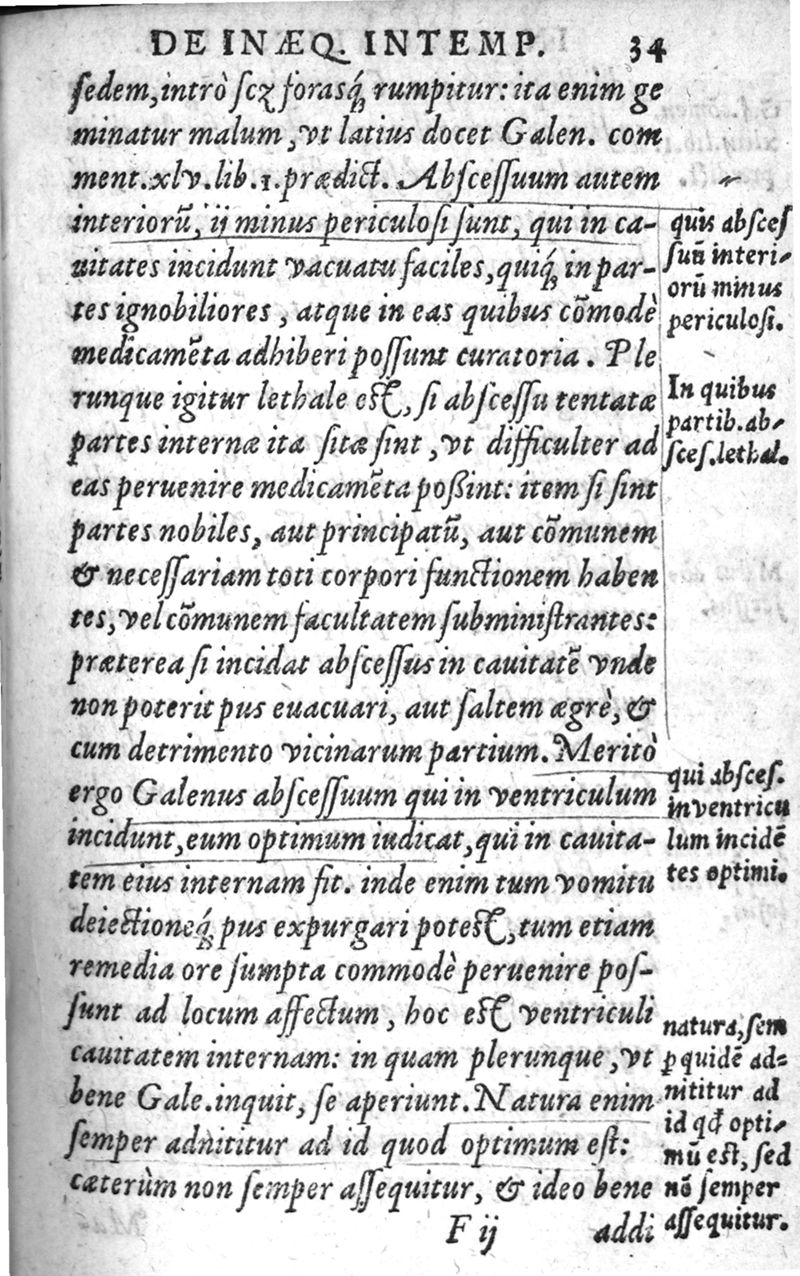 DE INÆQ. INTEMP. 34
sedem, intrò scꝫ forasq́ꝫ rumpitur: ita enim ge
minatur malum, vt latius docet Galen. com
ment. xlv. lib. 1. prædict. Abscessuum autem
interiorũ, ij minus periculosi sunt, qui in ca-
uitates incidunt vacuatu faciles, quiq́ꝫ in par-
tes ignobiliores, atque in eas quibus cõmodè
medicamẽta adhiberi possunt curatoria. Ple
runque igitur lethale est, si abscessu tentatæ
partes internæ ita sitæ sint, vt difficulter ad
eas peruenire medicamẽta poßint: item si sint
partes nobiles, aut principatũ, aut cõmunem
& necessariam toti corpori functionem haben
tes, vel cõmunem facultatem subministrantes:
præterea si incidat abscessus in cauitatẽ vnde
non poterit pus euacuari, aut saltem ægrè, &
cum detrimento vicinarum partium. Meritò
ergo Galenus abscessuum qui in ventriculum
incidunt, eum optimum iudicat, qui in cauita-
tem eius internam fit. inde enim tum vomitu
deiectioneq́ꝫ pus expurgari potest, tum etiam
remedia ore sumpta commodè peruenire pos-
sunt ad locum affectum, hoc est ventriculi
cauitatem internam: in quam plerunque, vt
bene Gale. inquit, se aperiunt. Natura enim
semper adnititur ad id quod optimum est:
cæterùm non semper assequitur, & ideo bene
F ij addi
quis absces
suũ interi-
orũ minus
periculosi.
In quibus
partib. ab-
sces. lethal.
qui absces.
in ventricu
lum incidẽ
tes optimi.
natura, sem
ꝑ quidẽ ad-
nititur ad
id qđ opti-
mũ est, sed
nõ semper
assequitur.